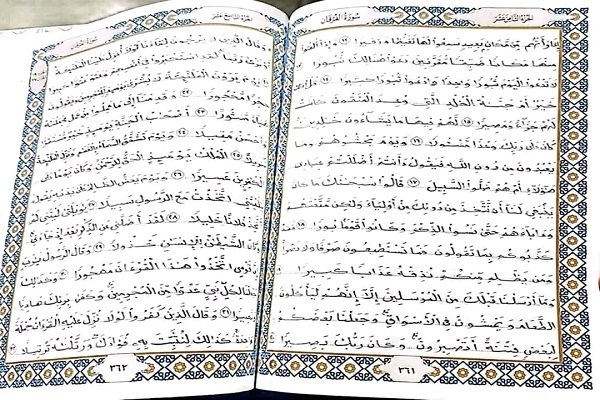 الجزء الثامن عشر
سورة الفرقان
إذا رأتهم من مكان بعيد سمعوا لها تغيظا وزفيرا ١٢ وإذا ألقوا
منها مكانا ضيقا مقرنين دعوا هنالك ثبورا ١٣
لا تدعوا اليوم ثبورا واحدا وادعوا ثبورا كثيرا ١٤ قل أذلك
خير أم جنة الخلد التي وعد المتقون كانت
لهم جزاء ومصيرا ١٥ لهم فيها ما يشاءون خلدين
كان على ربك وعدا مسئولا ١٦ ويوم يحشرهم وما
يعبدون من دون الله فيقول ءأنتم أضللتم عبادي
هؤلاء أم هم ضلوا السبيل ١٧ قالوا سبحنك ما كان
ينبغي لنا أن نتخذ من دونك من أولياء ولكن متعتهم
وءاباءهم حتى نسوا الذكر وكانوا قوما بورا ١٨ فقد
كذبوكم بما تقولون فما تستطيعون صرفا ولا نصرا
ومن يظلم منكم نذقه عذابا كبيرا ١٩
وما أرسلنا قبلك من المرسلين إلا إنهم ليأكلون
الطعام ويمشون في الأسواق وجعلنا بعضكم
لبعض فتنة أتصبرون وكان ربك بصيرا ٢٠
٣٦١
الجزء التاسع عشر
سورة الفرقان
وقال الذين لا يرجون لقاءنا لولا أنزل علينا الملئكة
أو نرى ربنا لقد استكبروا في أنفسهم وعتو عتوا كبيرا ٢١
يوم يرون الملئكة لا بشرى يومئذ للمجرمين ويقولون
حجرا محجورا ٢٢ وقدمنا إلى ما عملوا من عمل فجعلنه
هباء منثورا ٢٣ أصحب الجنة يومئذ خير مستقرا
وأحسن مقيلا ٢٤ ويوم تشقق السماء بالغمم ونزل الملئكة
تنزيلا ٢٥ الملك يومئذ الحق للرحمن وكان يوما على
الكفرين عسيرا ٢٦ ويوم يعض الظالم على يديه يقول
يليتني اتخذت مع الرسول سبيلا ٢٧ يويلتى ليتني لم
أتخذ فلانا خليلا ٢٨ لقد أضلني عن الذكر بعد إذ جاءني
وكان الشيطن للإنسن خذولا ٢٩ وقال الرسول يرب
إن قومي اتخذوا هذا القرءان مهجورا ٣٠ وكذلك
جعلنا لكل نبي عدوا من المجرمين وكفى بربك هاديا
ونصيرا ٣١ وقال الذين كفروا لولا نزل عليه القرءان جملة
وحدة كذلك لنثبت به فؤادك ورتلنه ترتيلا ٣٢
٣٦٢